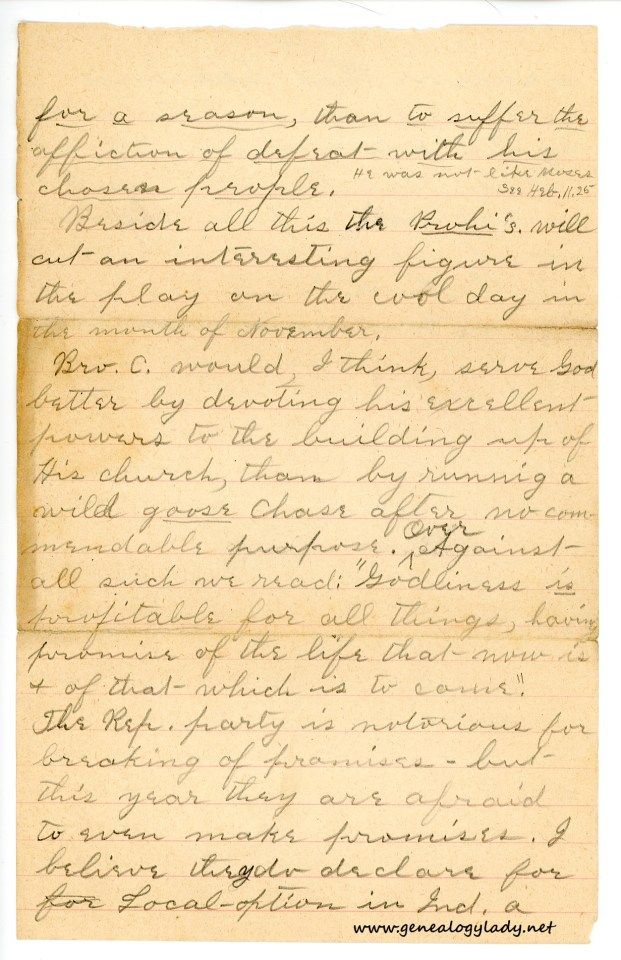 for a season, than to suffer the
affiction of defeat with his
chosen people. He was not like Moses
See Heb. 11.25
Beside all this the Prohi's. will
cut an interesting figure in
the play on the cool day in
the month of November.
Bro. C. would, I think, serve God
better by devoting his excellent
powers to the building up of
His church, than by runnig a
wild goose chase after no com-
mendable purpose. Over Against
all such we read: "Godliness is
profitable for all things, having
promise of the life that now is
+ of that which is to come".
The Rep. party is notorious for
breaking of promises - but
this year they are afraid
to even make promises. I
believe they do declare for
for Local-option in Ind. a
www.genealogylady.net